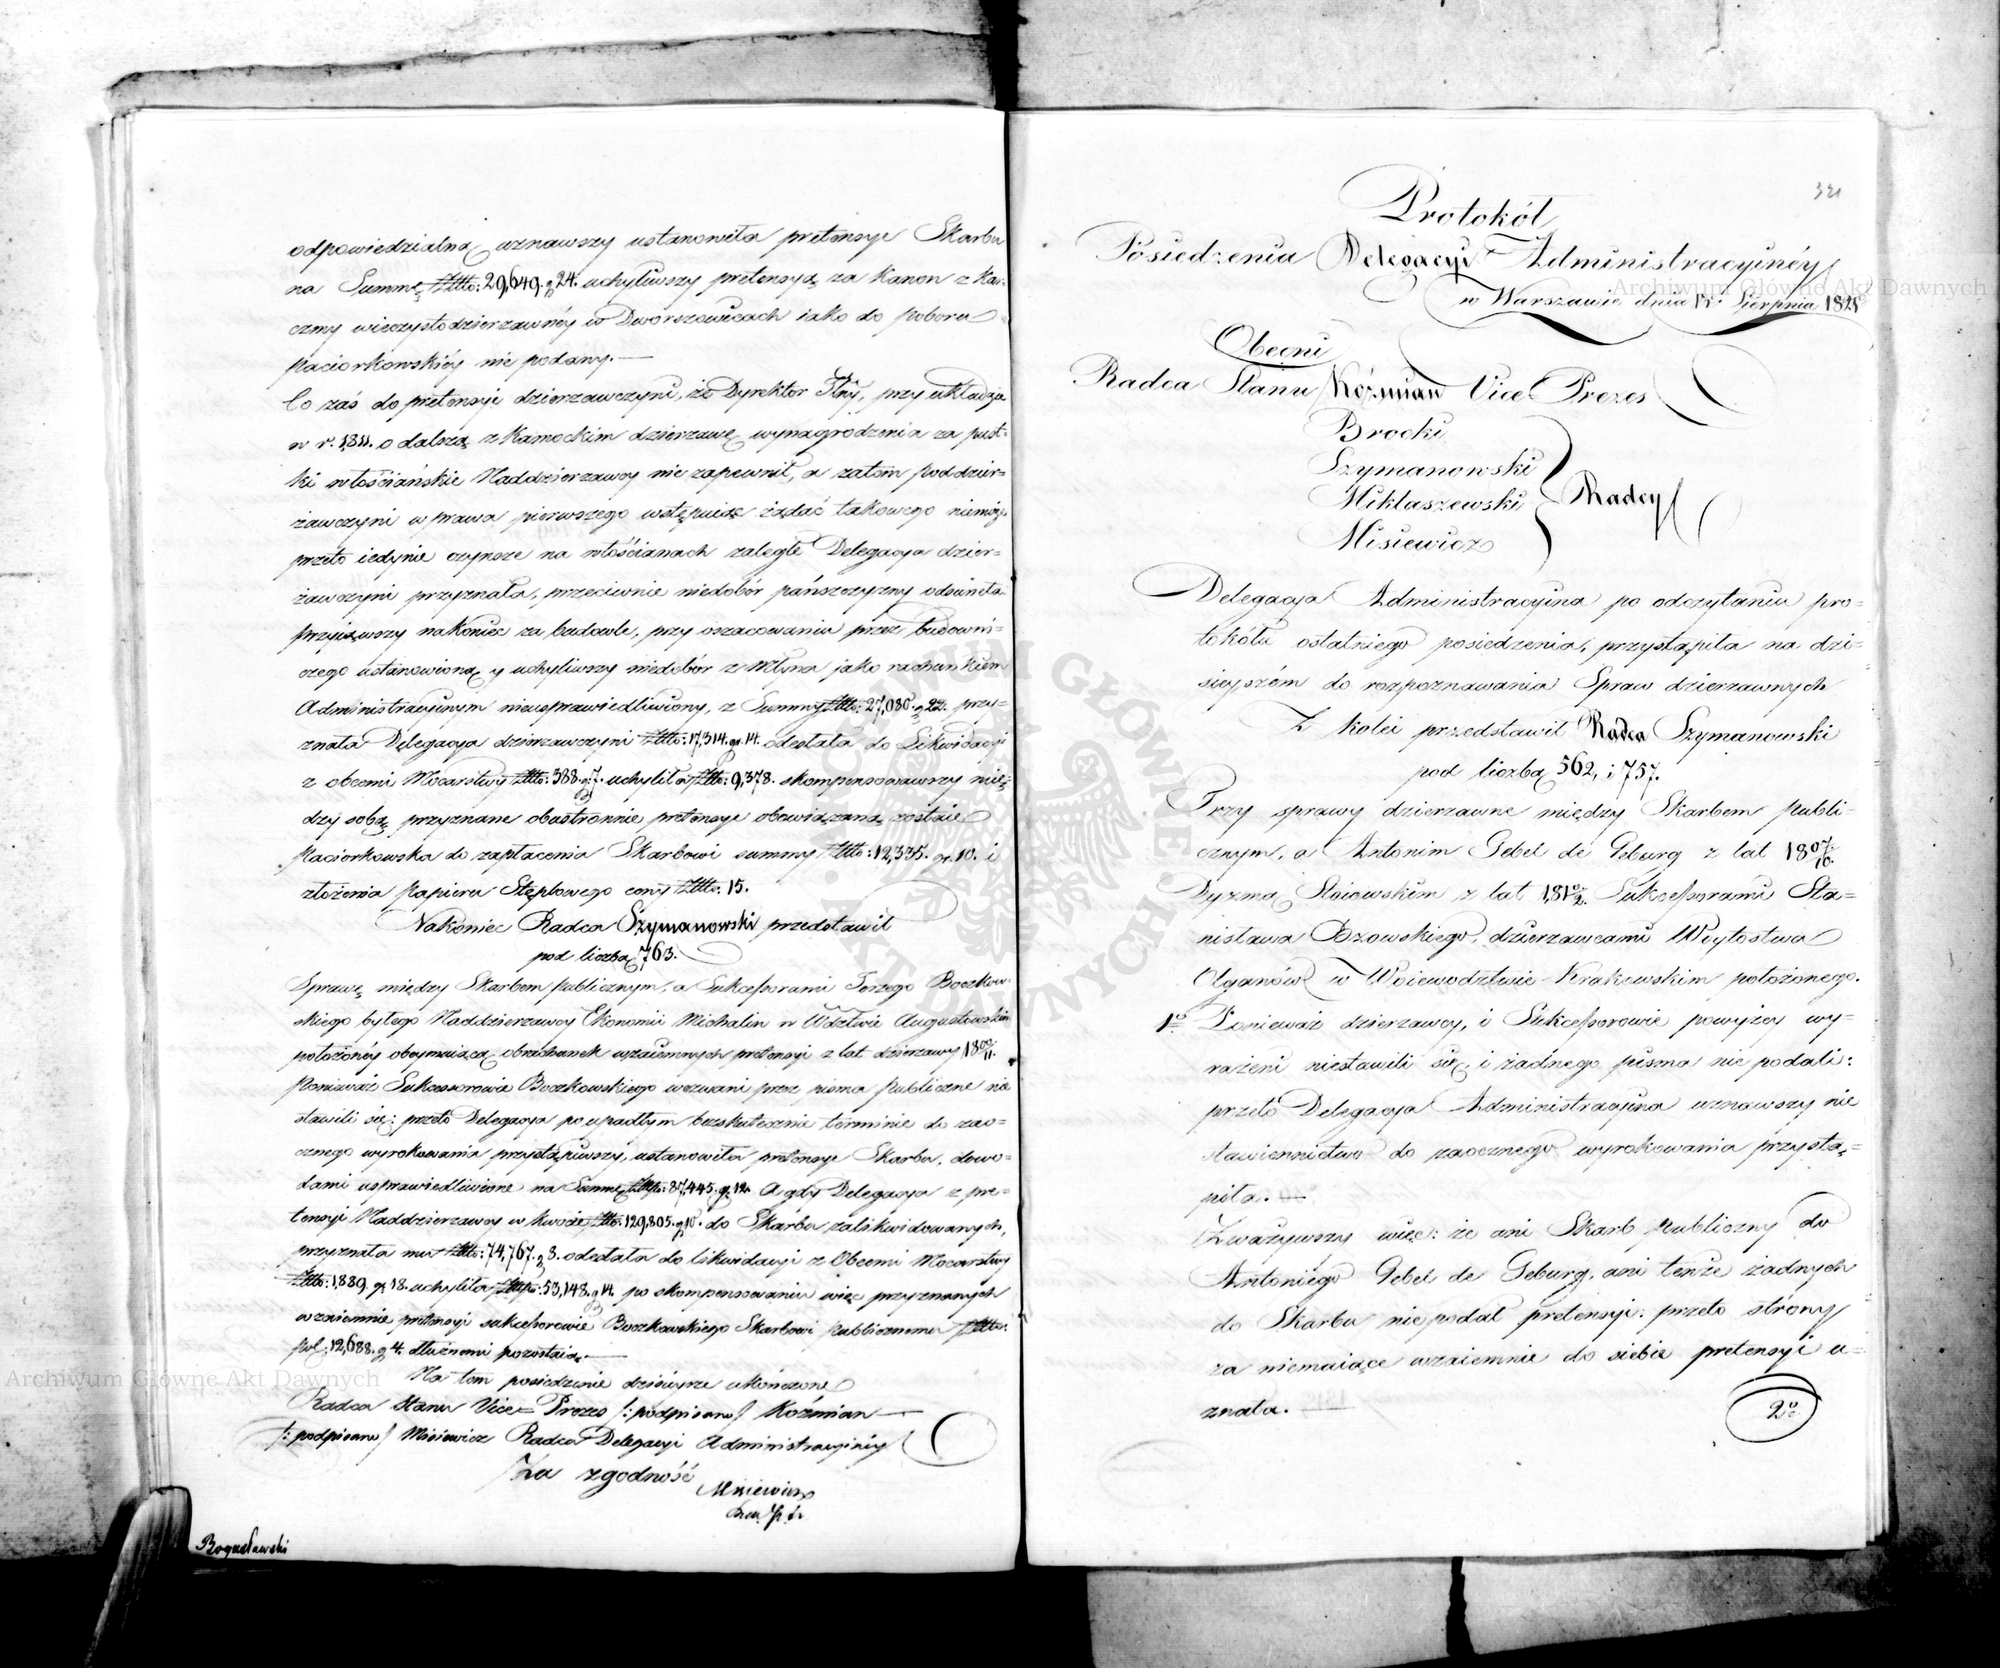 odpowiedzialną uznawszy ustanowiła pretensye Skarbu
na Summę Złtto: 29,649. g 24. uchyliwszy pretensyą za Kanon z Kar-
czmy wieczystodzierzawnéy w Dworszowicach iako do poboru
Paciorkowskiéy nie podany.—
Co zaś do pretensyi dzierzawczyni, że Dyrektor Jlny, przy układzie
w r. 1811. o dalszą z Kamockim dzierzawę wynagrodzenia za pust-
ki włościańskie Naddzierzawcy nie zapewnił, a zatem poddzier=
żawczyni w prawa pierwszego wstępuiąc żądać takowego niemoże
przeto iedynie czynsze na włościanach zaległe Delegacya dzier=
żawczyni przyznała, przeciwnie niedobór pańszczyzny odsunęła
przyiąwszy nakoniec za budowle, przy oszacowaniu przez budowni-
czego ustanowioną y uchyliwszy niedobór z Młyna jako rachunkiem
Administracyinym nieusprawiedliwiony, z Summy Złtto: 27,080. g 22. przy-
znała Delegacya dzierzawczyni Złtto: 17,314. gr. 14. odesłała do Likwidacyi
z obcemi Mocarstwy Złtto: 388. g. 7. uchyliła Złtto: 9,378. skompensowawszy mię-
dzy sobą przyznane obustronnie pretensye obowiązaną zostaie
Paciorkowska do zapłacenia Skarbowi summy Złtto: 12,335. gr. 10. i
złożenia Papieru Stęplowego ceny Złtto: 15.
Nakoniec Radca Szymanowski przedstawił
pod liczbą 763.
Sprawę między Skarbem Publicznym, a Sukcessorami Jerzego Boczkow-
skiego byłego Naddzierzawcy Ekonomii Michalin w Wdztwie Augustowskim
położonéy obeymuiącą obrachunek wzaiemnych pretensyi z lat dzierzawy
Ponieważ Sukcessorowie Boczkowskiego wezwani przez pisma Publiczne nie
stawili się: przeto Delegacya po upadłym bezskutecznie terminie do zao=
cznego wyrokowania przystąpiwszy, ustanowiła pretensye Skarbu, dowo=
dami usprawiedliwione na Summę Złtto: 87,445. g. 12. A gdy Delegacya z pre-
tensyi Naddzierzawcy w kwocie Złtto: 129,805. g 10. do Skarbu zalikwidowanych,
przyznała mu Złtto: 74,767. g 8. odesłała do likwidacyi z Obcemi Mocarstwy
Złtto: 1,889. gr 18. uchyliła Złtto: 53,148. g 14. po skompensowaniu więc przyznanych
wzaiemnie pretensyi sukcessorowie Boczkowskiego Skarbowi Publicznemu Złtto:
pol: 12,688. g 4. dłużnemi pozostaią.—
Na tem posiedzenie dzisieysze ukończone
Radca Stanu Vice= Prezes /: podpisano / Koźmian —
/: podpisano / Misiewicz Radca Delegacyi Administracyinéy
Za zgodność
Misiewicz
Bogusławski
321
Protokół
Posiedzenia Delegacyi Administracyinéy
w Warszawie dnia Sierpnia
Obecni
Radca Stanu Koźmian Vice Prezes
Brocki
Szymanowski
Miklaszewski
Radcy
Misiewicz
Delegacya Administracyina po odczytaniu pro=
tokółu ostatniego posiedzenia, przystąpiła na dzi=
sieyszém do rozpoznawania Spraw dzierzawnych
Z kolei przedstawił Radca Szymanowski
pod liczbą 562, i 757.
Trzy sprawy dzierzawne między Skarbem Publi=
cznym, a Antonim Gebel de Geburg z lat
Dyzmą z lat Sukcessorami Sta=
nisława Bzowskiego, dzierzawcami Woytostwa
Olganów w Woiewodztwie Krakowskim położonego.
1º Ponieważ dzierzawcy, i Sukcessorowie powyżey wy=
rażeni niestawili się, i żadnego pisma nie podali:
przeto Delegacya Administracyina uznawszy nie
stawiennictwo do zaocznego wyrokowania przystą=
piła. —
Zważywszy więc: że ani Skarb Publiczny do
Antoniego Gebel de Geburg, ani tenże żadnych
do Skarbu nie podał pretensyi: przeto strony
za niemaiące wzaiemnie do siebie pretensyi u=
znała. —
2º
Archiwum Główne Akt Dawnych
Archiwum Główne Akt Dawnych
ARCHIWUM GŁÓWNE AKT DAWNYCH